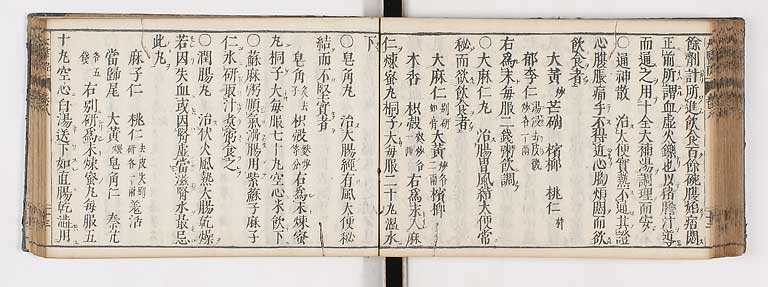 餘劑計所進飲食百餘碗腹始痞悶
正前所謂血虛火燥也反猪膽汁導
而通之用十全大補湯調理而安
○通神散 治大便實熱不通其證
心腹脹痛手不得近心胸煩悶而欲
飲食者
大黃 芒硝 檳榔 桃仁
郁李仁
右爲末每服二錢粥飲調
○大麻仁丸 治腸胃風結大便常
秘而欲飲食者
大麻仁 大黃 檳榔
木香 枳殼 右爲末入麻
仁煉蜜丸桐子大每服二十丸溫水
下
○皂角丸 治大腸經有風大便秘
結而不堅實者
皂角 枳殼 右爲末煉蜜
丸桐子大每服七十丸空心米飲下
○蘇麻粥順氣滑腸用紫蘇子麻子
仁水研取汁煮粥食之
○潤腸丸 治伏火風熱大腸乾燥
若因失血或因腎虛當滋腎水最忌
此丸
麻子仁 桃仁 羌活
當歸尾 大黃 皂角仁 秦艽
右剉研爲末煉蜜丸每服五
十丸空心白湯送下如直腸乾澁用